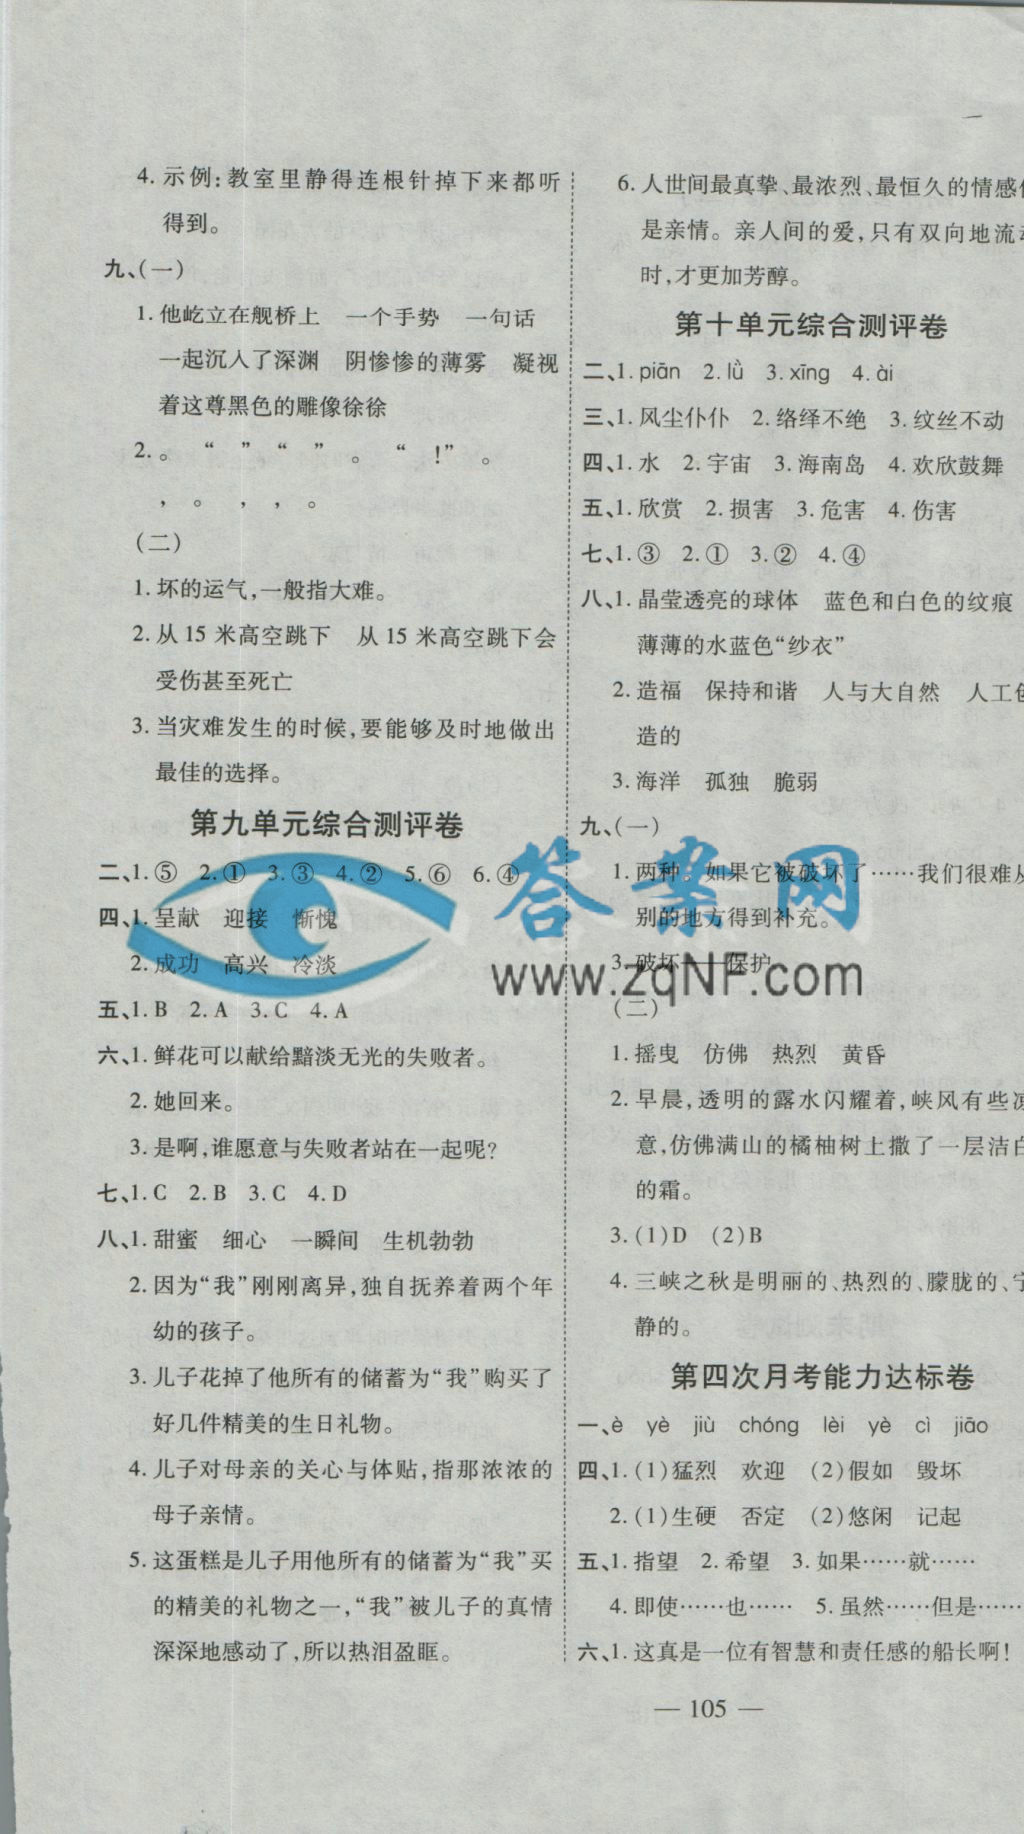 4. 示例:教室里静得连根针掉下来都听
得到。
九、(一)
1. 他屹立在舰桥上 一个手势 一句话
一起沉入了深渊 阴惨惨的薄雾 凝视
着这尊黑色的雕像徐徐
2. 。 “ ”“ ” 。 “ !” 。
, 。 , , 。
(二)
1. 坏的运气,一般指大难。
2. 从 15 米高空跳下 从 15 米高空跳下会
受伤甚至死亡
3. 当灾难发生的时候,要能够及时地做出
最佳的选择。
第九单元综合测评卷
二、1. ⑤ 2. ① 3. ③ 4. ② 5. ⑥ 6. ④
四、1. 呈献 迎接 惭愧
2. 成功 高兴 冷淡
五、1. B 2. A 3. C 4. A
六、1. 鲜花可以献给黯淡无光的失败者。
2. 她回来。
3. 是啊,谁愿意与失败者站在一起呢?
七、1. C 2. B 3. C 4. D
八、1. 甜蜜 细心 一瞬间 生机勃勃
2. 因为“我”刚刚离异,独自抚养着两个年
幼的孩子。
3. 儿子花掉了他所有的储蓄为“我”购买了
好几件精美的生日礼物。
4. 儿子对母亲的关心与体贴,指那浓浓的
母子亲情。
5. 这蛋糕是儿子用他所有的储蓄为“我”买
的精美的礼物之一,“我”被儿子的真情
深深地感动了,所以热泪盈眶。
6. 人世间最真挚、最浓烈、最恒久的情感
是亲情。亲人间的爱,只有双向地流
时,才更加芳醇。
第十单元综合测评卷
二、1. piān 2. lǜ 3. xīng 4. ài
三、1. 风尘仆仆 2. 络绎不绝 3. 纹丝不动
四、1. 水 2. 宇宙 3. 海南岛 4. 欢欣鼓舞
五、1. 欣赏 2. 损害 3. 危害 4. 伤害
七、1. ③ 2. ① 3. ② 4. ④
八、1. 晶莹透亮的球体 蓝色和白色的纹痕
薄薄的水蓝色“纱衣”
2. 造福 保持和谐 人与大自然 人工
造的
3. 海洋 孤独 脆弱
九、(一)
1. 两种。如果它被破坏了……我们很难从
别的地方得到补充。
3. 破坏——保护
(二)
1. 摇曳 仿佛 热烈 黄昏
2. 早晨,透明的露水闪耀着,峡风有些凉
意,仿佛满山的橘柚树上撒了一层洁白
的霜。
3. (1)D (2)B
4. 三峡之秋是明丽的、热烈的、朦胧的、宁
静的。
第四次月考能力达标卷
一、è yè jiù chóng lèi yè cì jiāo
四、1. (1)猛烈 欢迎 (2)假如 毁坏
2. (1)生硬 否定 (2)悠闲 记起
五、1. 指望 2. 希望 3. 如果……就……
4. 即使……也…… 5. 虽然……但是……
六、1. 这真是一位有智慧和责任感的船长啊!
— 105 —
答案网
www.zqNF.com